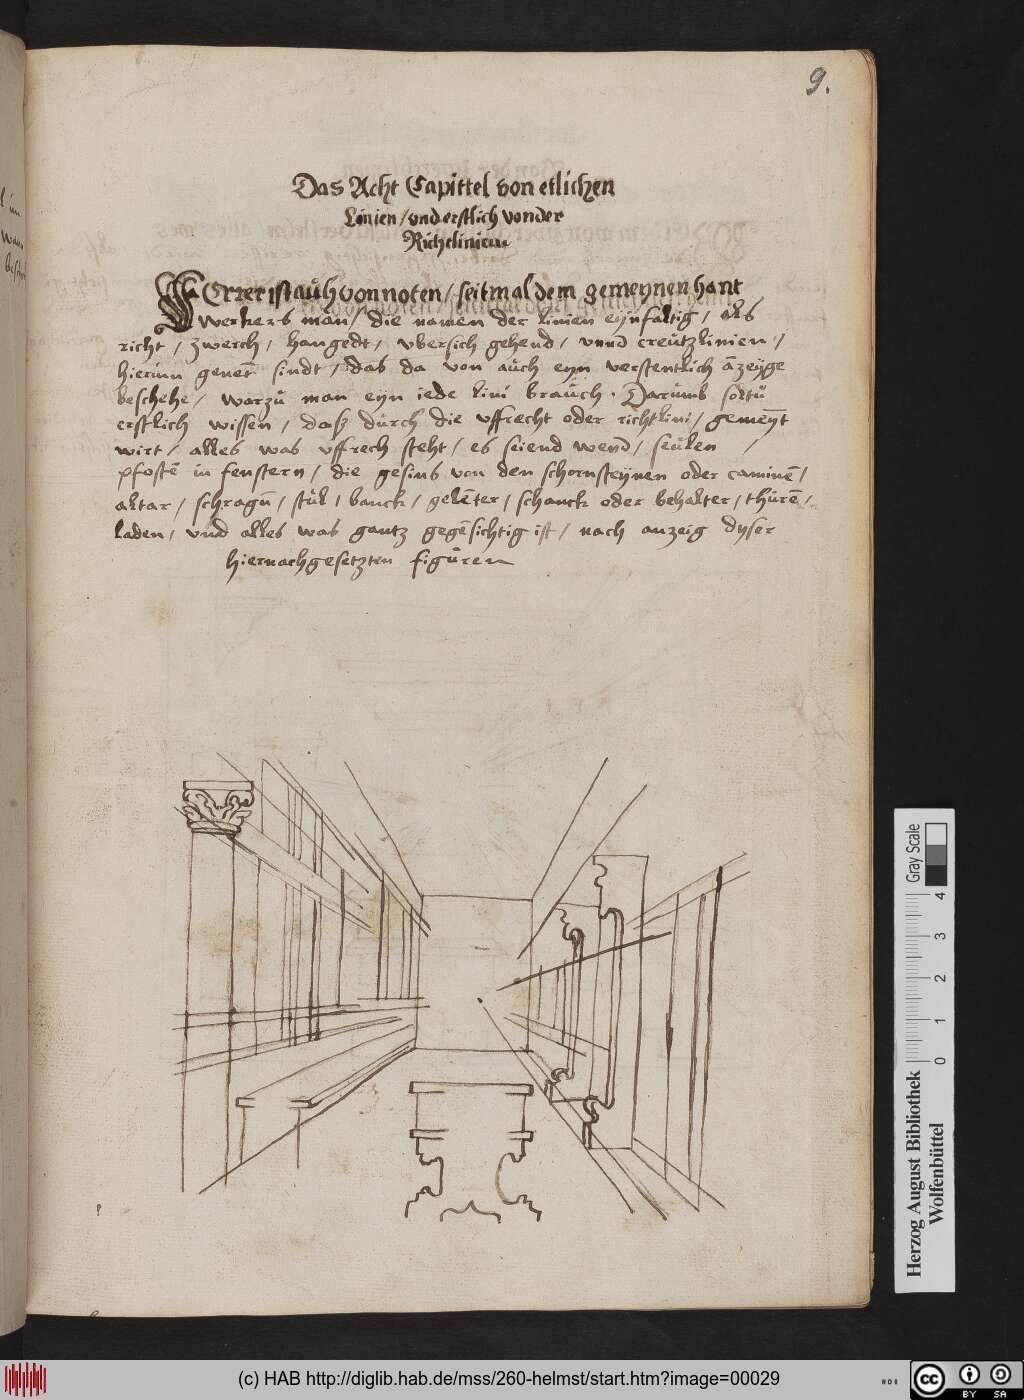 9.
Das Acht Capittel von etlichen
Linien / und erstlich von der
Richtlinien
Errer ist auch von noten / seitmal dem gemeynen hant
werkers man / die namen der linien eynfaltig / als
richt / zwerch / hangedt / ubersich gehend / unnd creutzlinien /
hierinn genet sindt / das da von auch eyn verstentlich āzeyge
beschehe / warzu man eyn iede lini brauch . Darumb soltu
erstlich wissen / daß durch die uffrecht oder richtlini / gemeȳt
wirt / alles was uffrech steht / es seiend wend / seulen /
pfostē in fenstern / die gesims von den schornsteynen oder caminē /
altar / schragn̄ / stul / banck / gelēter / schanck oder behalter / thurē /
laden / und alles was gantz gegēsichtig ist / nach anzeig dyser
hiernachgesetzten figuren
Herzog August Bibliothek
Wolfenbüttel
0 1 2 3 4
Gray Scale
(c) HAB http://diglib.hab.de/mss/260-helmst/start.htm?image=00029
cc BY SA